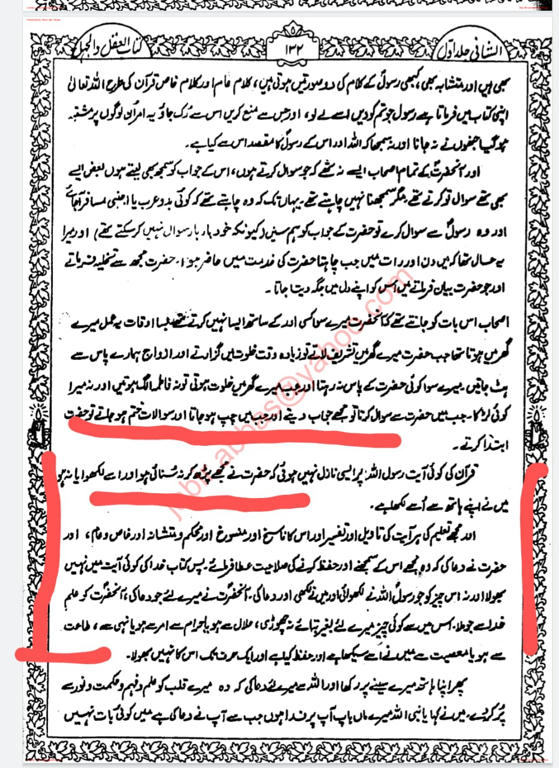 کتاب العقل والجہل
۱۲۲
الشافی جلد اوّل
بھی ہیں اور متشابہ بھی، کبھی رسولؐ کے کلام کی دو صورتیں ہوتی ہیں، کلام عام اور کلام خاص قرآن کی طرح اللہ تعالیٰ
اپنی کتاب میں فرماتا ہے رسول جو تم کو دیں اسے لے لو، اور جس سے منع کریں اس سے رُک جاؤ یہ امر اُن لوگوں پر مشتبہ
ہو گیا جنھوں نے نہ جانا اور نہ سمجھا کہ اللہ اور اس کے رسول کا مقصد اس سے کیا ہے۔
اور آنحضرتؐ کے تمام اصحاب ایسے نہ تھے کہ جو سوال کرتے ہوں، اس کے جواب کو سمجھ بھی لیتے ہوں بعض ایسے
بھی تھے سوال تو کرتے تھے مگر سمجھنا نہیں چاہتے تھے یہاں تک کہ وہ چاہتے تھے کہ کوئی بدو عرب یا اجنبی مسافر آجائے
اور وہ رسولؐ سے سوال کرے تو حضرت کے جواب کو ہم سنیں (کیونکہ خود بار بار سوال نہیں کر سکتے تھے) اور میرا
یہ حال تھا کہ میں دن اور رات میں جب چاہتا حضرت کی خدمت میں حاضر ہوتا۔ حضرت مجھ سے تخلیہ فرماتے
اور جو حضرت بیان فرماتے میں اس کو اپنے دل میں جگہ دیتا جاتا۔
اصحاب اس بات کو جانتے تھے کہ آنحضرت میرے سوا کسی اور کے ساتھ ایسا نہیں کرتے تھے بسا اوقات یہ عمل میرے
گھر میں ہوتا تھا جب حضرت میرے گھر میں تشریف لاتے تو زیادہ وقت خلوت میں گزارتے اور ازواج ہمارے پاس سے
ہٹ جاتیں۔ میرے سوا کوئی حضرت کے پاس نہ رہتا اور جب میرے گھر میں خلوت ہوتی تو نہ فاطمہ الگ ہوتیں اور نہ میرا
کوئی لڑکا۔ جب میں حضرت سے سوال کرتا تو مجھے جواب دیتے اور جب میں چپ ہو جاتا اور سوالات ختم ہو جاتے تو حضرت
ابتدا کرتے۔
قرآن کی کوئی آیت رسول اللہ پر ایسی نازل نہیں ہوئی کہ حضرت نے مجھے پڑھ کر نہ سُنائی ہو اور اسے لکھوایا نہ ہو
میں نے اپنے ہاتھ سے اُسے لکھا ہے۔
اور مجھے تعلیم کی ہر آیت کی تاویل اور تفسیر اور اس کا ناسخ اور منسوخ اور محکم و متشابہ اور خاص و عام، اور
حضرت نے دعا کی کہ وہ مجھے اس کے سمجھنے اور حفظ کرنے کی صلاحیت عطا فرمائے۔ پس کتاب خدا کی کوئی آیت میں نہیں
بھولا اور نہ اس چیز کو جو رسول اللہ نے لکھوائی اور میں نے لکھی اور دعا کی۔ آنحضرتؐ نے میرے لئے جو دعا کی، آنحضرتؐ کو علم
خدا سے جو ملا۔ اس میں سے کوئی چیز میرے لئے بغیر بتائے نہ چھوڑی، حلال سے ہو یا حرام سے امر سے ہو یا نہی سے، طاعت
سے ہو یا معصیت سے میں نے اسے سیکھا ہے اور حفظ کیا ہے اور ایک حرف تک اس کا نہیں بھولا۔
پھر اپنا ہاتھ میرے سینے پر رکھا اور اللہ سے میرے لئے دعا کی کہ وہ میرے قلب کو علم و فہم و حکمت و نور سے
پُر کر دے۔ میں نے کہا یا نبی اللہ میرے ماں باپ آپ پر فدا ہوں جب سے آپ نے دعا کی ہے میں کوئی بات نہیں